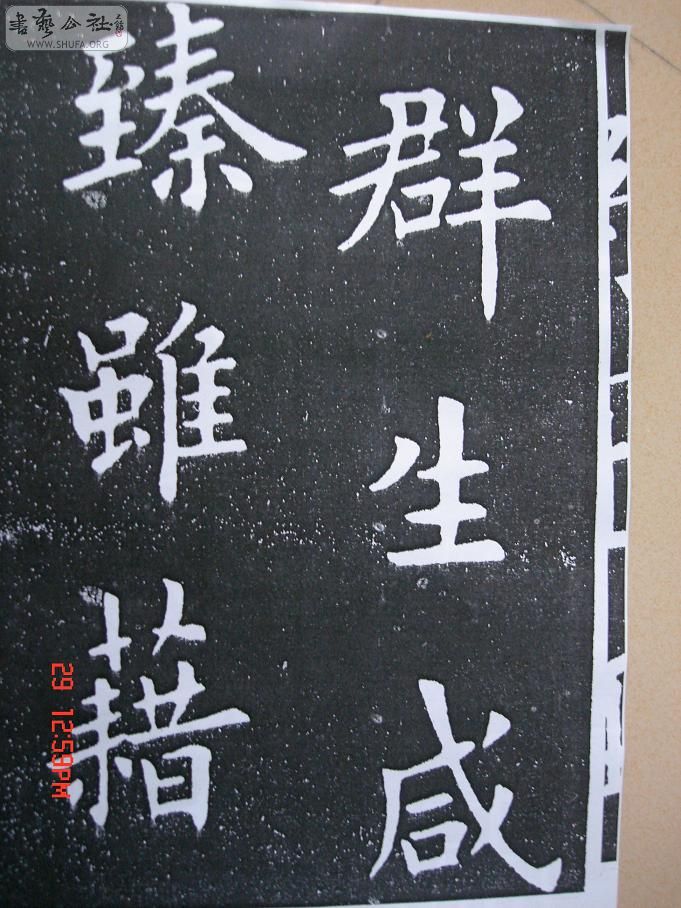 群生咸
臻雖藉
書藝公社
WWW.SHUFA.ORG
29 12:59PM